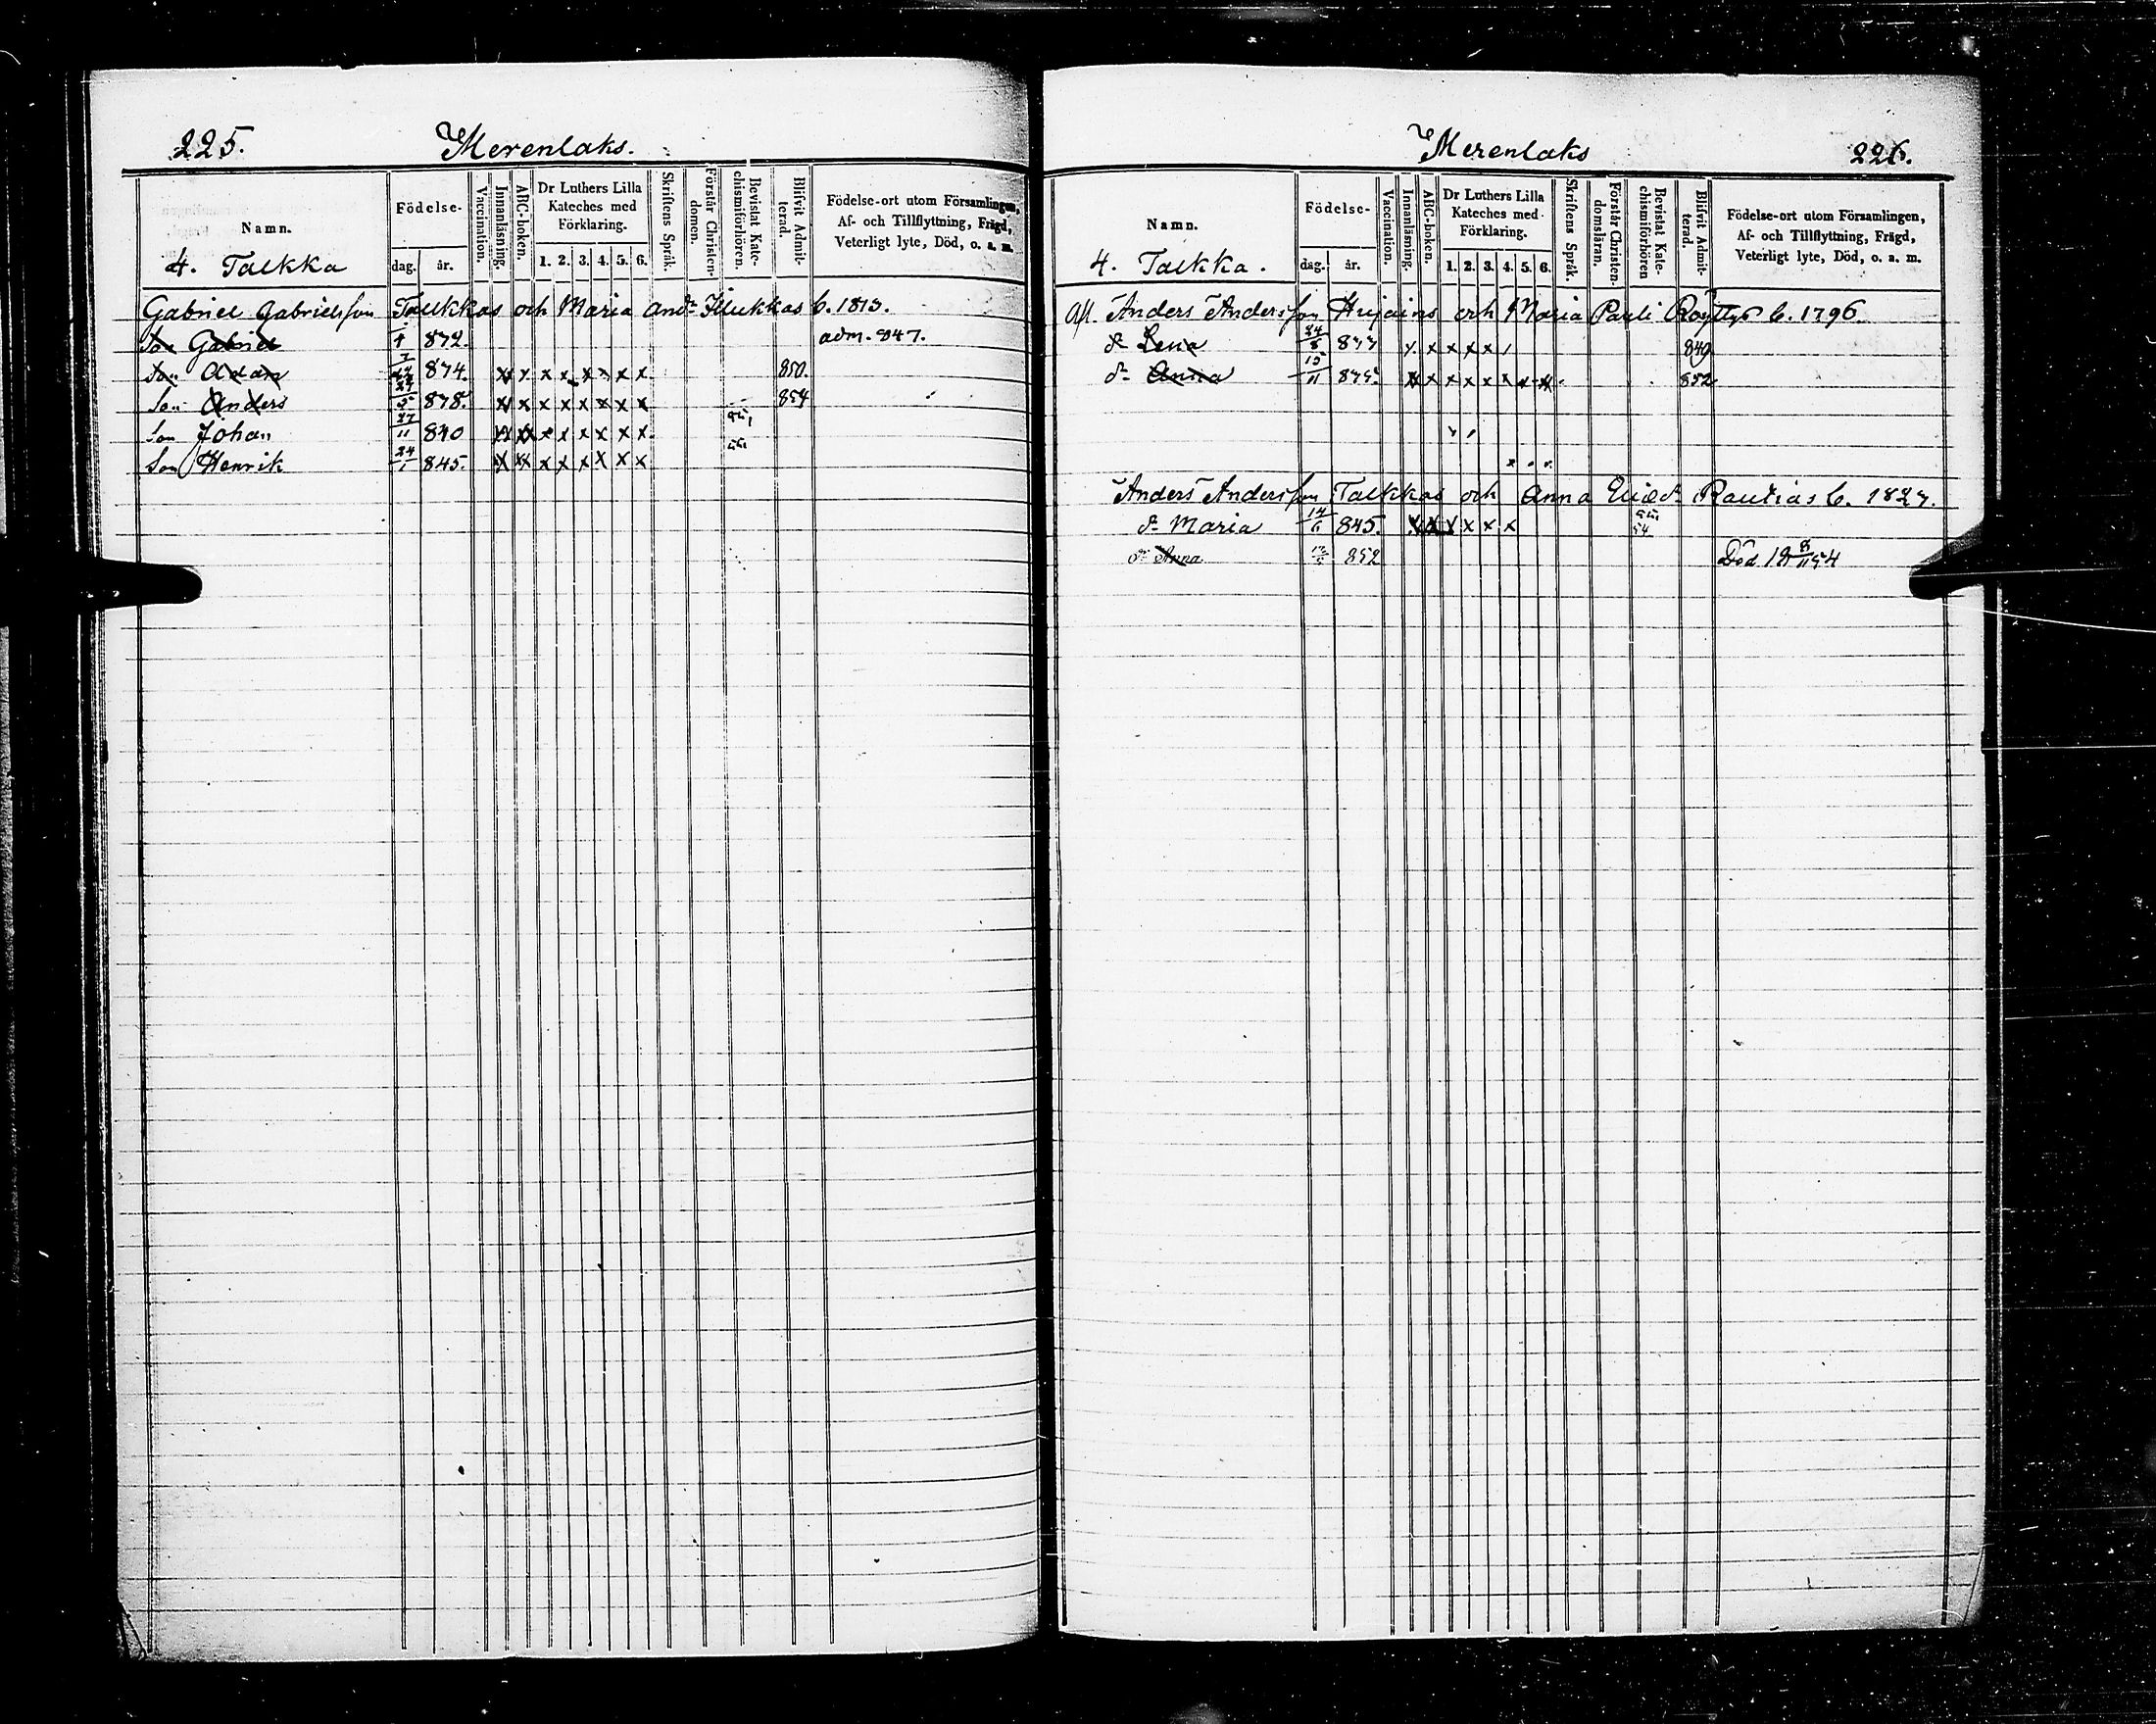 225. Merenlaks.
Namn.
4. Talkka
Födelse-
dag. år.
Vaccination.
Innanläsning.
ABC-boken.
Dr Luthers Lilla
Kateches med
Förklaring.
1. 2. 3. 4. 5. 6.
Skriftens Språk.
Förstår Christen-
domen.
Bevistat Kate-
chismiförhören.
Blifvit Admit-
terad.
Födelse-ort utom Församlingen,
Af- och Tillflyttning, Frägd,
Veterligt lyte, Död, o. a. m.
Gabriel Gabrielsson Talkkas och Maria And:r Illukkas b. 1813.
Son Gabriel 832. adm. 847.
Son Adam 834. x x x x x x x x 850.
Son Anders 838. x x x x x x x x 854
Son Johan 27/11 840 x x x x x x x x
Son Henrik 24/1 845. x x x x x x x x
Merenlaks 226.
Namn.
4. Talkka.
Födelse-
dag. år.
Vaccination.
Innanläsning.
ABC-boken.
Dr Luthers Lilla
Kateches med
Förklaring.
1. 2. 3. 4. 5. 6.
Skriftens Språk.
Förstår Christen-
domsläran.
Bevistat Kate-
chismiförhören
Blifvit Admit-
terad.
Födelse-ort utom Församlingen,
Af- och Tillflyttning, Frägd,
Veterligt lyte, Död, o. a. m.
Afl. Anders Andersson Hujains och Maria Pauli Röyttys b. 1796.
d:r Lena 24/8 833 x x x x x 849
d:r Anna 15/11 835. x x x x x x x x 852
Anders Andersson Talkkas och Anna Elia d:r Rautias b. 1823.
d:r Maria 14/6 845. x x x x x x 54
d:r Anna 852 Död 18 8/11 54